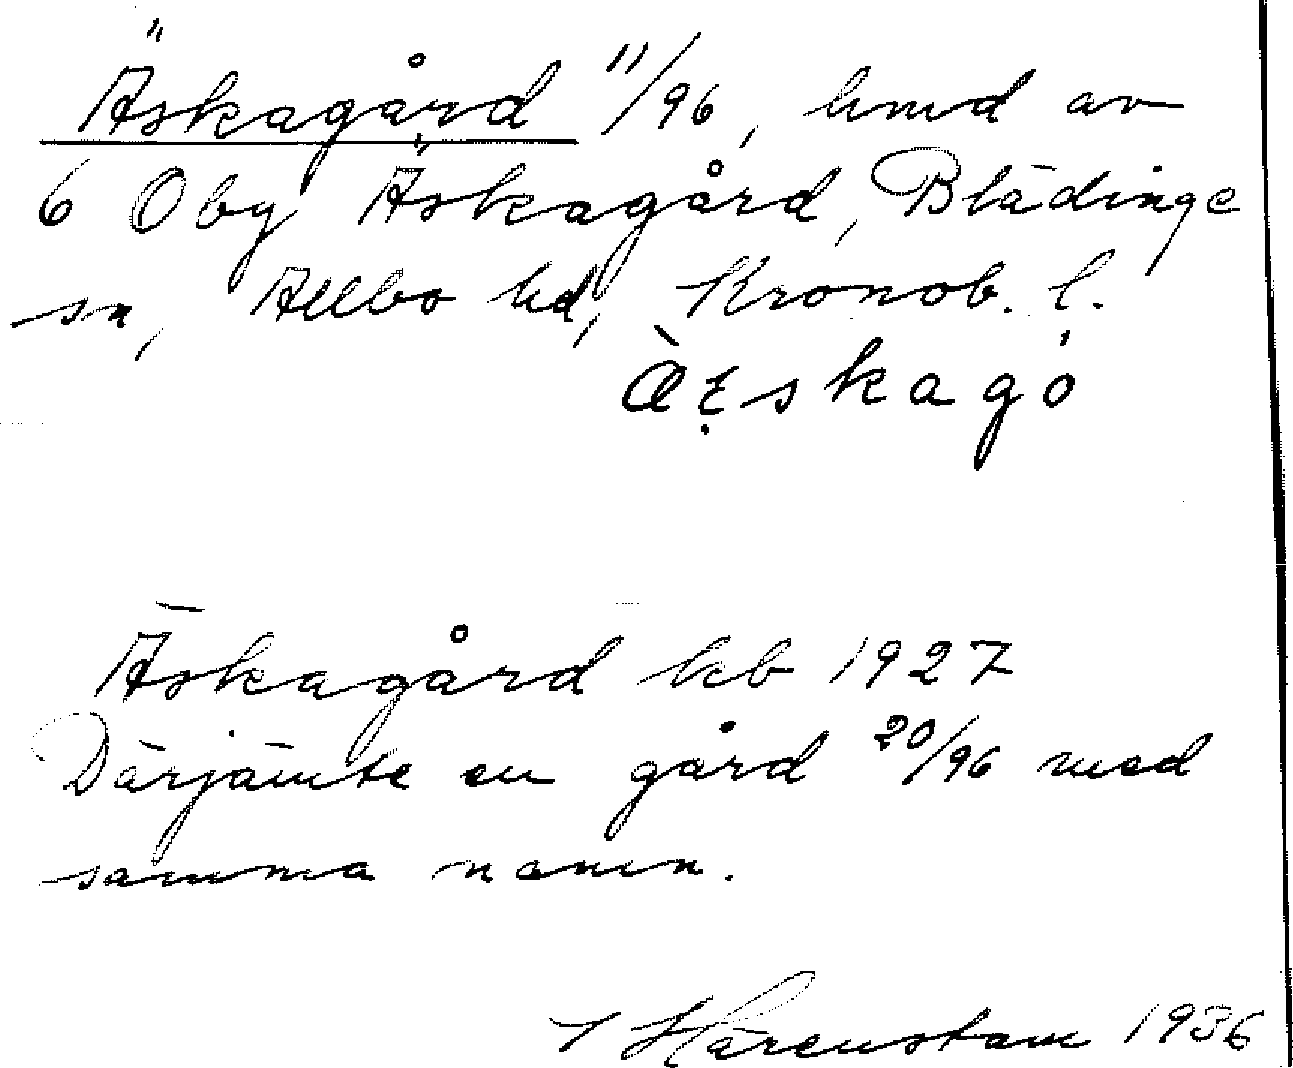 Äskagård 11/96, hmd av
6 Oby Äskagård, Blädinge
sn, Allbo hd, Kronob. l.
Äskagård kb 1927
Därjämte en gård 20/96 med
samma namn.
Härenstam 1936